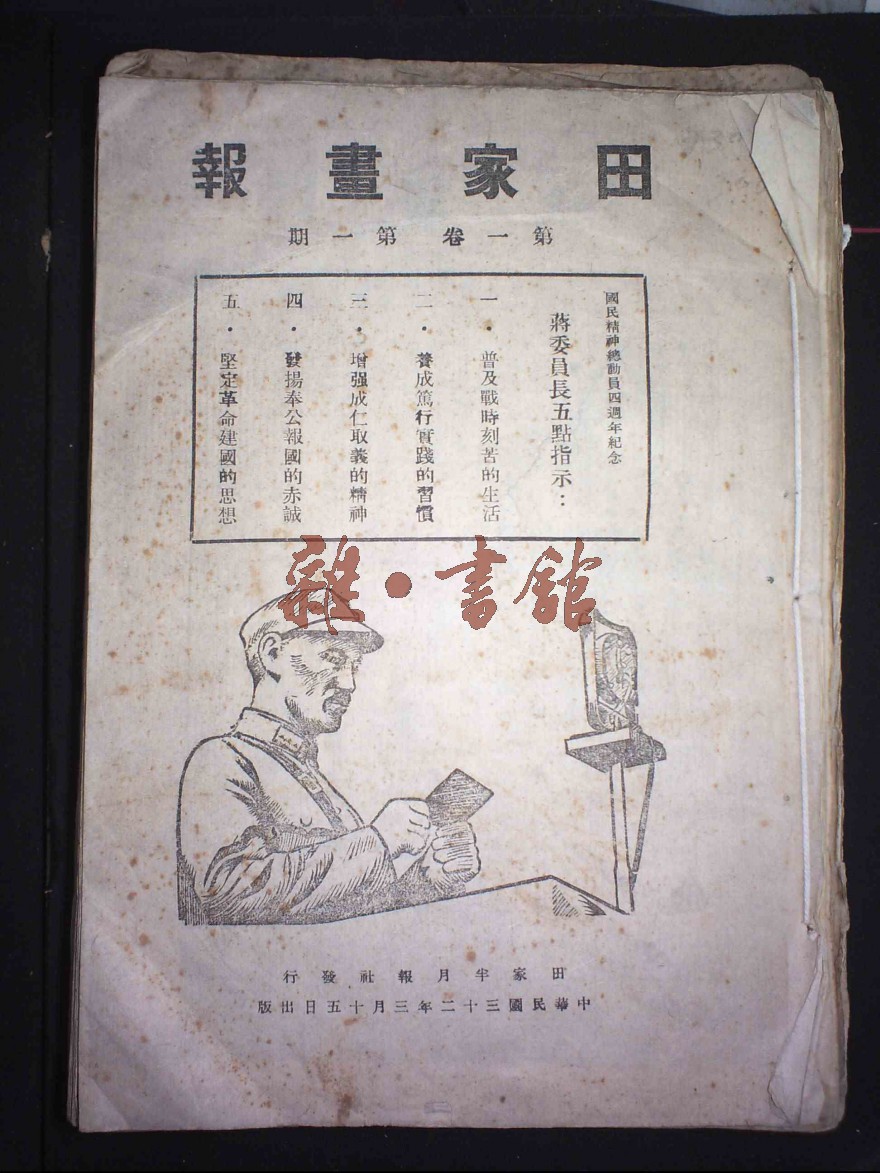 田家畫報
第一卷 第一期
國民精神總動員四週年紀念
蔣委員長五點指示：
一．普及戰時刻苦的生活
二．養成篤行實踐的習慣
三．增强成仁取義的精神
四．發揚奉公報國的赤誠
五．堅定革命建國的思想
雜·書館
田家半月報社發行
中華民國三十二年三月十五日出版